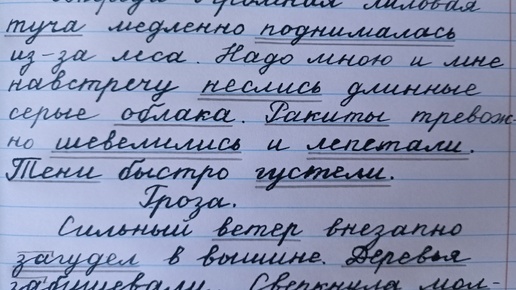 лиловая
туча медленно поднималась
из-за леса. Надо мною и мне
навстречу неслись длинные
серые облака. Ракиты тревож-
но шевелились и лепетали.
Тени быстро густели.
Гроза.
Сильный ветер внезапно
загудел в вышине. Деревья
забушевали. Сверкнула мол-